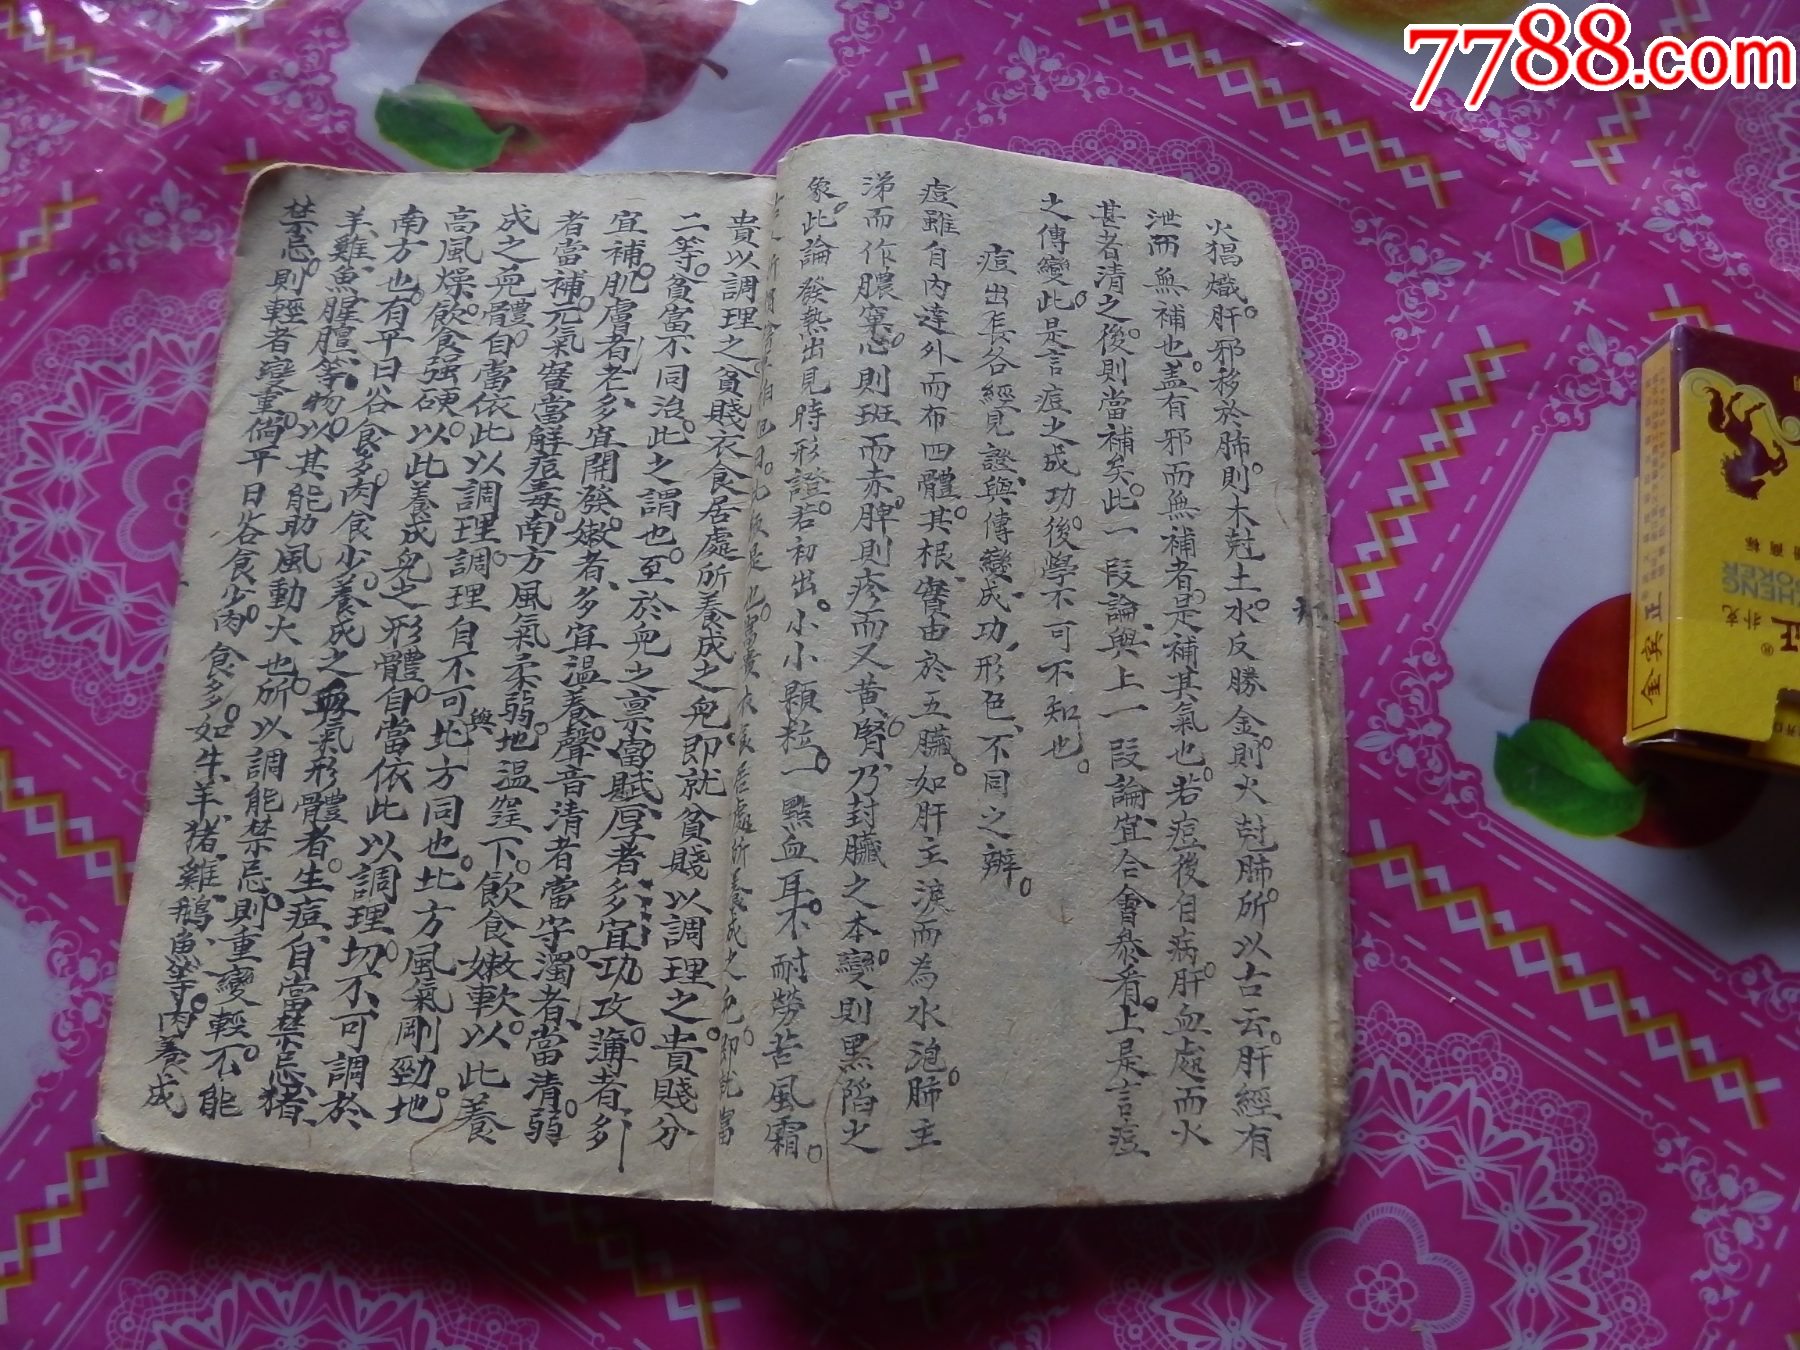 火猖熾。肝邪移於肺。則木尅土。水反勝金。則火尅肺。所以古云。肝經有
泄而無補也。盖有邪而無補者。是補其氣也。若痘後自病肝。肝血處而火
甚者清之。後則當補矣。此一段論與上一段論。宜合會叅看。上是言痘
之傳變。此是言痘之成功。後學不可不知也。
痘出長各經見證與傳變成功、形色、不同之辨。
痘雖自内達外而布四體。其根實由於五臟。如肝主淚而為水泡。肺主
涕而作膿窠。心則斑而赤。脾則疹而又黄。腎乃封臟之本。變則黑陷之
象。此論發熱出見時形證。若初出。小小顆粒。一點血耳。不耐勞苦風霜。
衣食居處所養成之兒。即就富
貴以調理之。貧賤衣食居處所養成之兒。即就貧賤以調理之。貴賤分
二等。貧富不同治。此之謂也。至於兒之禀富賦厚者。多宜功攻。薄者。多
宜補。肌膚者老、多宜開發。嫩者、多宜温養。聲音清者當守。濁者。當清。弱
者當補。元氣實當解痘毒。南方風氣柔弱。地温窪下。飲食嫩軟。以此養
成之兒體。自當依此以調理。調理自不可與北方同也。北方風氣剛勁。地
高風燥。飲食强硬。以此養成兒之形體。自當依此以調理。切不可調於
南方也。有平日谷食多。肉食少。養成之血氣形體者。生痘。自當禁忌猪、
羊、雞、魚腥膻等物。以其能助風動火也。所以調能禁忌。則重變輕。不能
禁忌。則輕者變重。倘平日谷食少。肉食多。如牛、羊、猪、雞、鵝、魚等。肉養成
7788.com
金宾正
非克
商标